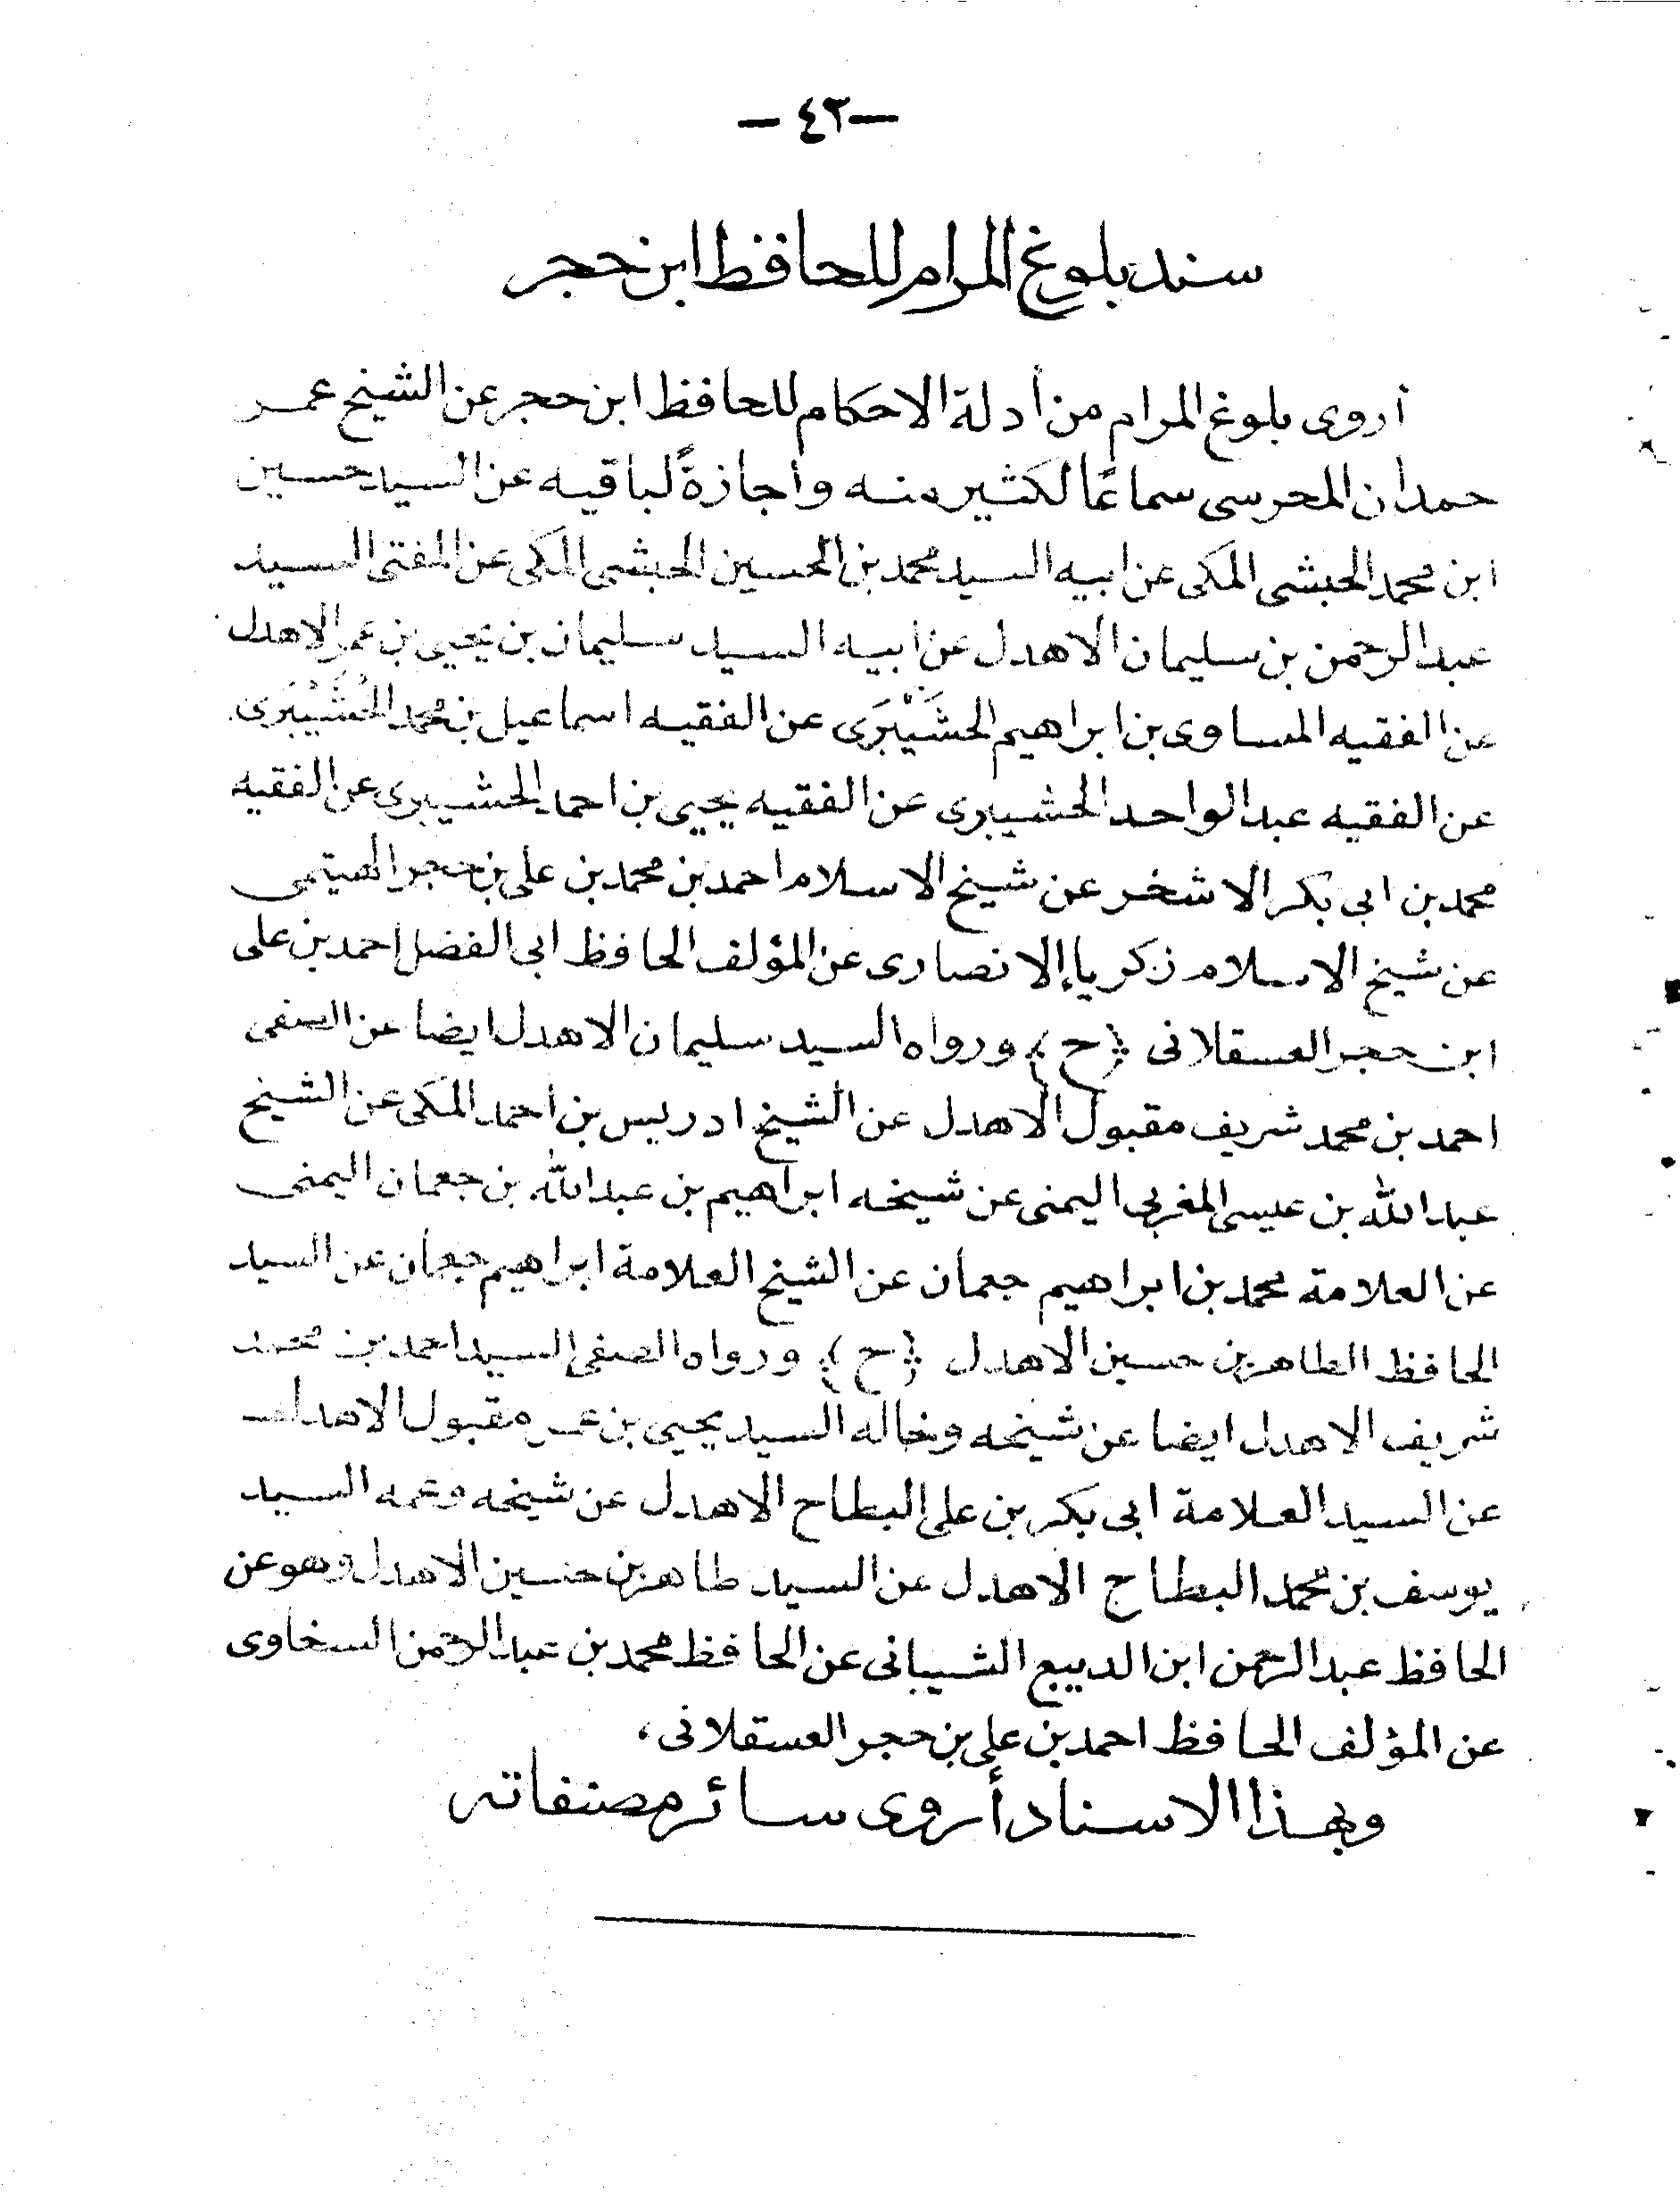 — ٤٢ —
سند بلوغ المرام للحافظ ابن حجر
أروى بلوغ المرام من أدلة الاحكام للحافظ ابن حجر عن الشيخ عمر
حمدان المحرسى سماعًا لكثير منه واجازةً لباقيه عن السيد حسين
ابن محمد الحبشى المكى عن ابيه السيد محمد بن الحسين الحبشى المكى عن المفتى السيد
عبد الرحمن بن سليمان الاهدل عن ابيه السيد سليمان بن يحيى بن عمر الاهدل
عن الفقيه المساوى بن ابراهيم الحشَيْبَرى عن الفقيه اسماعيل بن محمد الحُشَيْبَرى
عن الفقيه عبد الواحد الحشيبرى عن الفقيه يحيى بن احمد الحشيبرى عن الفقيه
محمد بن ابى بكر الاشخر عن شيخ الاسلام احمد بن محمد بن على بن حجر الهيتمى
عن شيخ الاسلام زكريا الانصارى عن المؤلف الحافظ ابى الفضل احمد بن على
ابن حجر العسقلانى {ح} ورواه السيد سليمان الاهدل ايضا عن الصفى
احمد بن محمد شريف مقبول الاهدل عن الشيخ ادريس بن احمد المكى عن الشيخ
عبد الله بن عيسى المغربى اليمنى عن شيخه ابراهيم بن عبد الله بن جعمان اليمنى
عن العلامة محمد بن ابراهيم جعمان عن الشيخ العلامة ابراهيم جعمان عن السيد
الحافظ الطاهر بن حسين الاهدل {ح} ورواه الصفى السيد احمد بن محمد
شريف الاهدل ايضا عن شيخه وخاله السيد يحيى بن عمر مقبول الاهدل
عن السيد العلامة ابى بكر بن على البطاح الاهدل عن شيخه وعمه السيد
يوسف بن محمد البطاح الاهدل عن السيد طاهر بن حسين الاهدل وهو عن
الحافظ عبد الرحمن ابن الديبع الشيبانى عن الحافظ محمد بن عبد الرحمن السخاوى
عن المؤلف الحافظ احمد بن على بن حجر العسقلانى،
وبهذا الاسناد أروى سائر مصنفاته